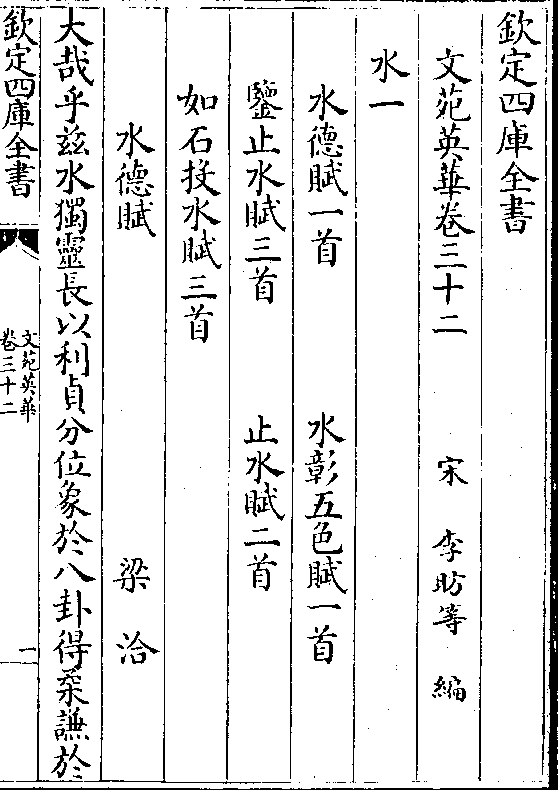 欽定四庫全書
文苑英華卷三十二 宋 李昉等 編
水一
水德賦一首 水彰五色賦一首
鑒止水賦三首 止水賦二首
如石投水賦三首
水德賦 梁洽
大哉乎茲水獨靈長以利貞分位象於八卦得柔謙於
欽定四庫全書
文苑英華
卷三十二
一